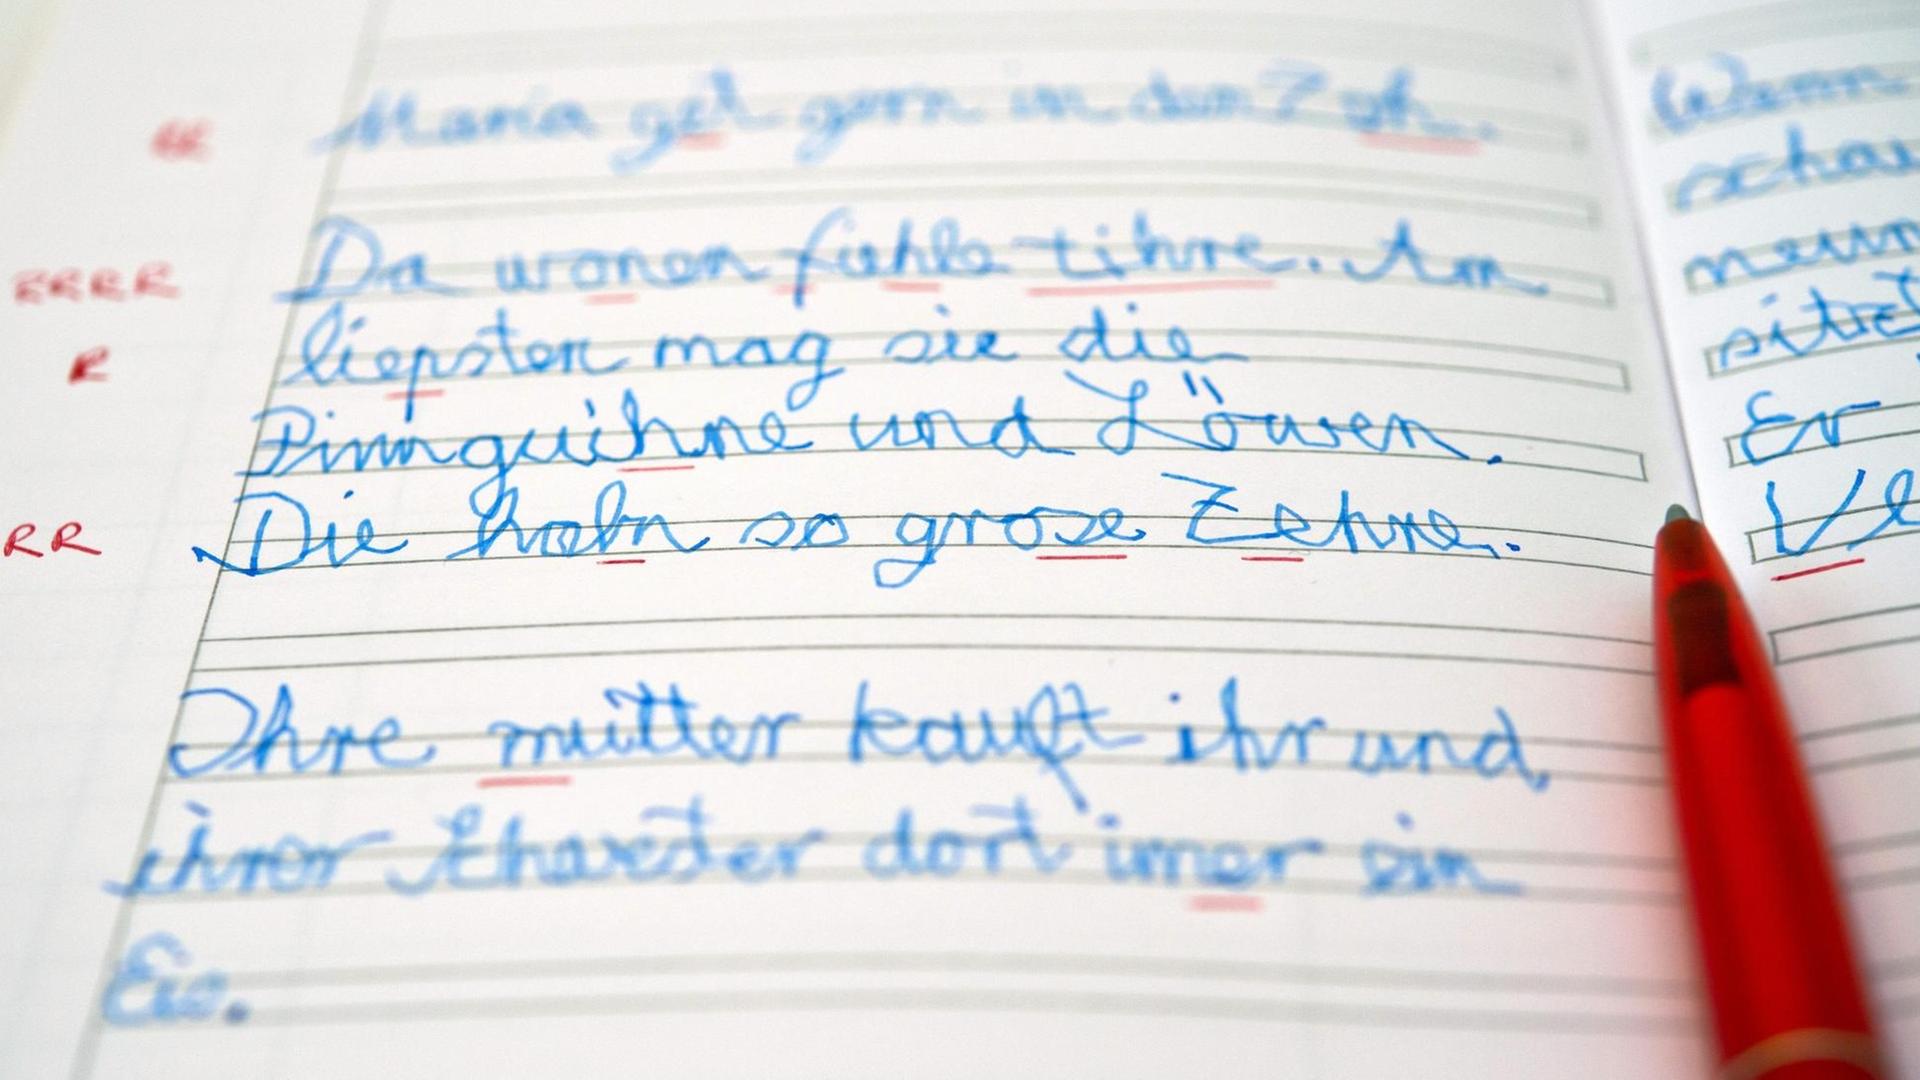 RR Maria get gern in den Zoh.
RRRR Da wonen fiehle tihre. Am
R liepsten mag sie die
Pinnguihne und Löwen.
RR Die habn so grose Zehne.
Ihre mutter kauft ihr und
ihrer dort imer ein
Eis.
Wenn
schau
neun
sitzt
Er